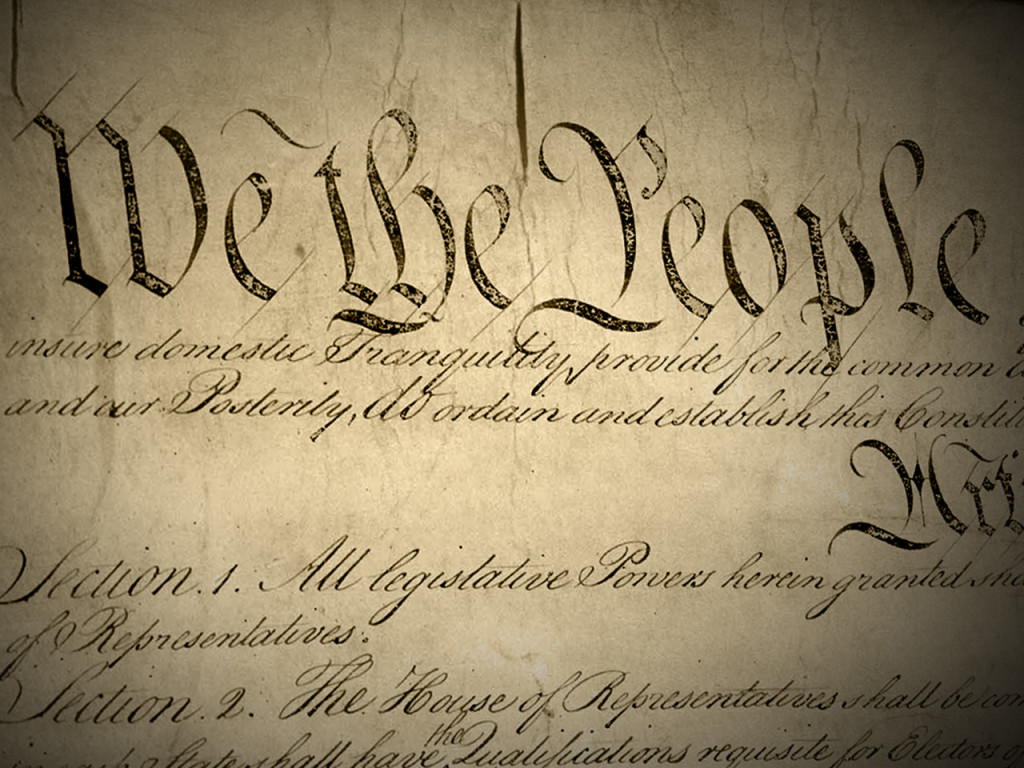 We the People
insure domestic Tranquility, provide for the common
and our Posterity, do ordain and establish this Constit
Arti
Section. 1. All legislative Powers herein granted sha
of Representatives.
Section. 2. The House of Representatives shall be com
the
in each State shall have Qualifications requisite for Electors of